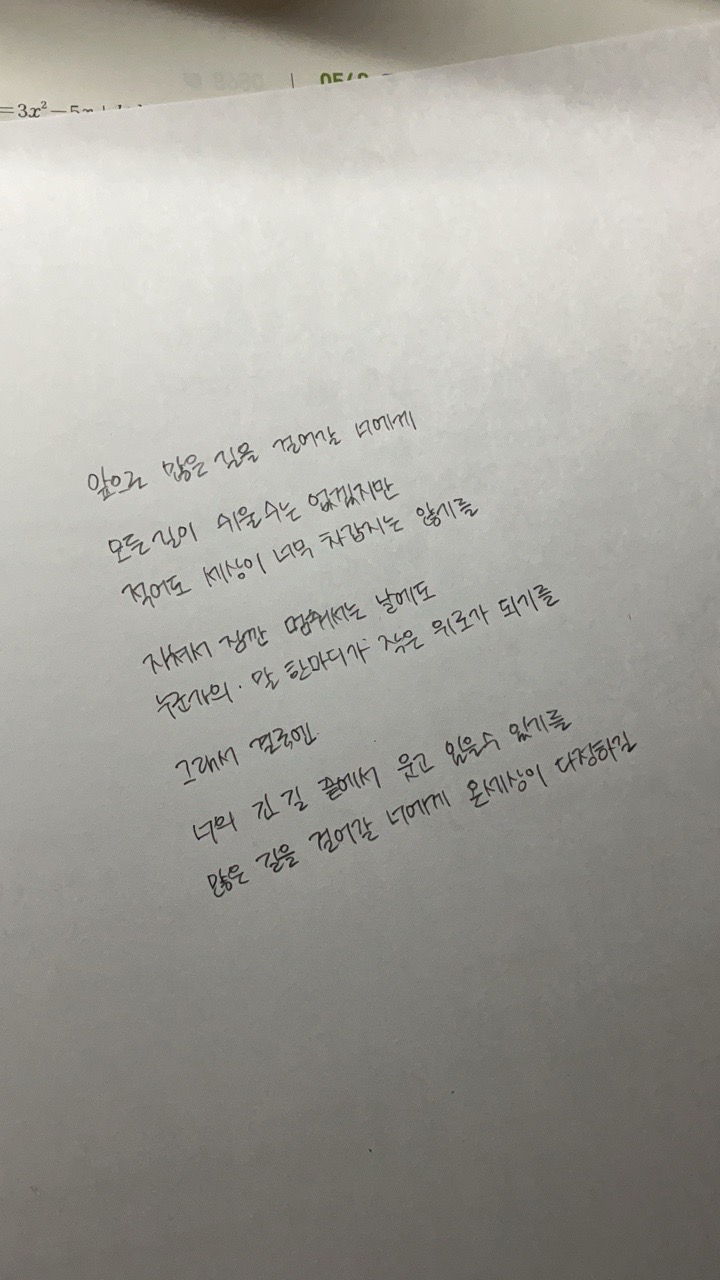 =3x²-5x+
앞으로 많은 길을 걸어갈 너에게
모든 길이 쉬울 수는 없겠지만
적어도 세상이 너무 차갑지는 않기를
지쳐서 잠깐 멈춰서는 날에도
누군가의 말 한마디가 작은 위로가 되기를
그래서 결국엔
너의 긴 길 끝에서 웃고 있을 수 있기를
많은 길을 걸어갈 너에게 온세상이 다정하길